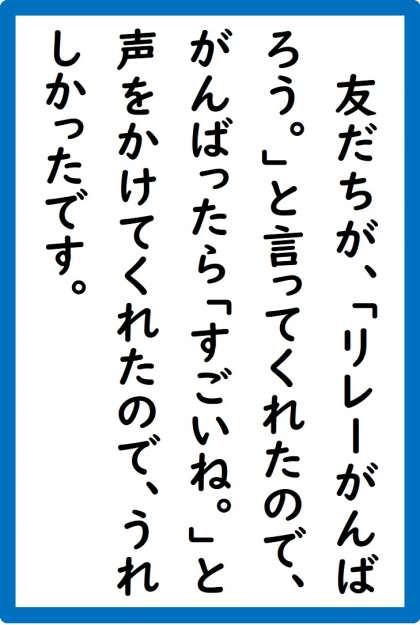 友だちが、「リレーがんば
ろう。」と言ってくれたので、
がんばったら「すごいね。」と
声をかけてくれたので、うれ
しかったです。